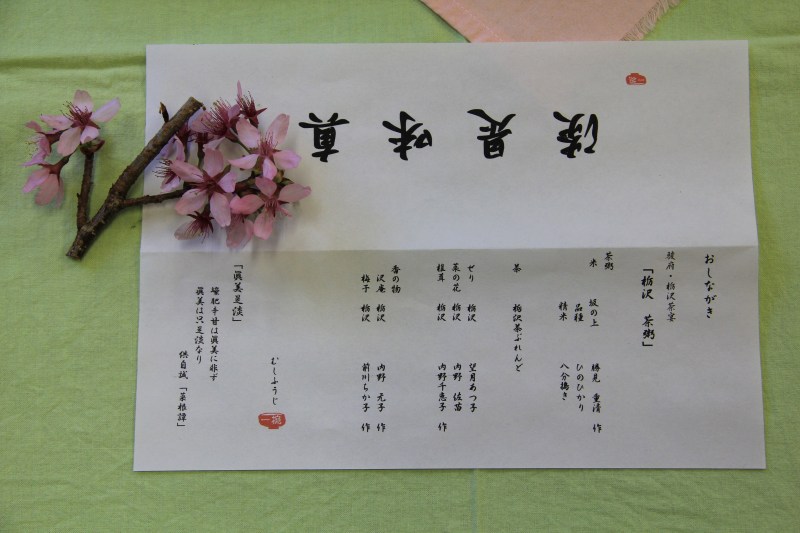 真味是淡
おしながき
駿府・栃沢茶宴
「栃沢 茶粥」
茶粥
米 坂の上 勝見 重清 作
品種 ひのひかり
精米 八分搗き
茶 栃沢茶ぶれんど
せり 栃沢 望月あつ子
菜の花 栃沢 内野 佐苗
椎茸 栃沢 内野千恵子 作
香の物
沢庵 栃沢 内野 元子 作
梅干 栃沢 前川ちか子 作
むしふうじ
「眞美是淡」
醲肥辛甘は眞美に非ず
眞美は只是淡なり
洪自誠「菜根譚」